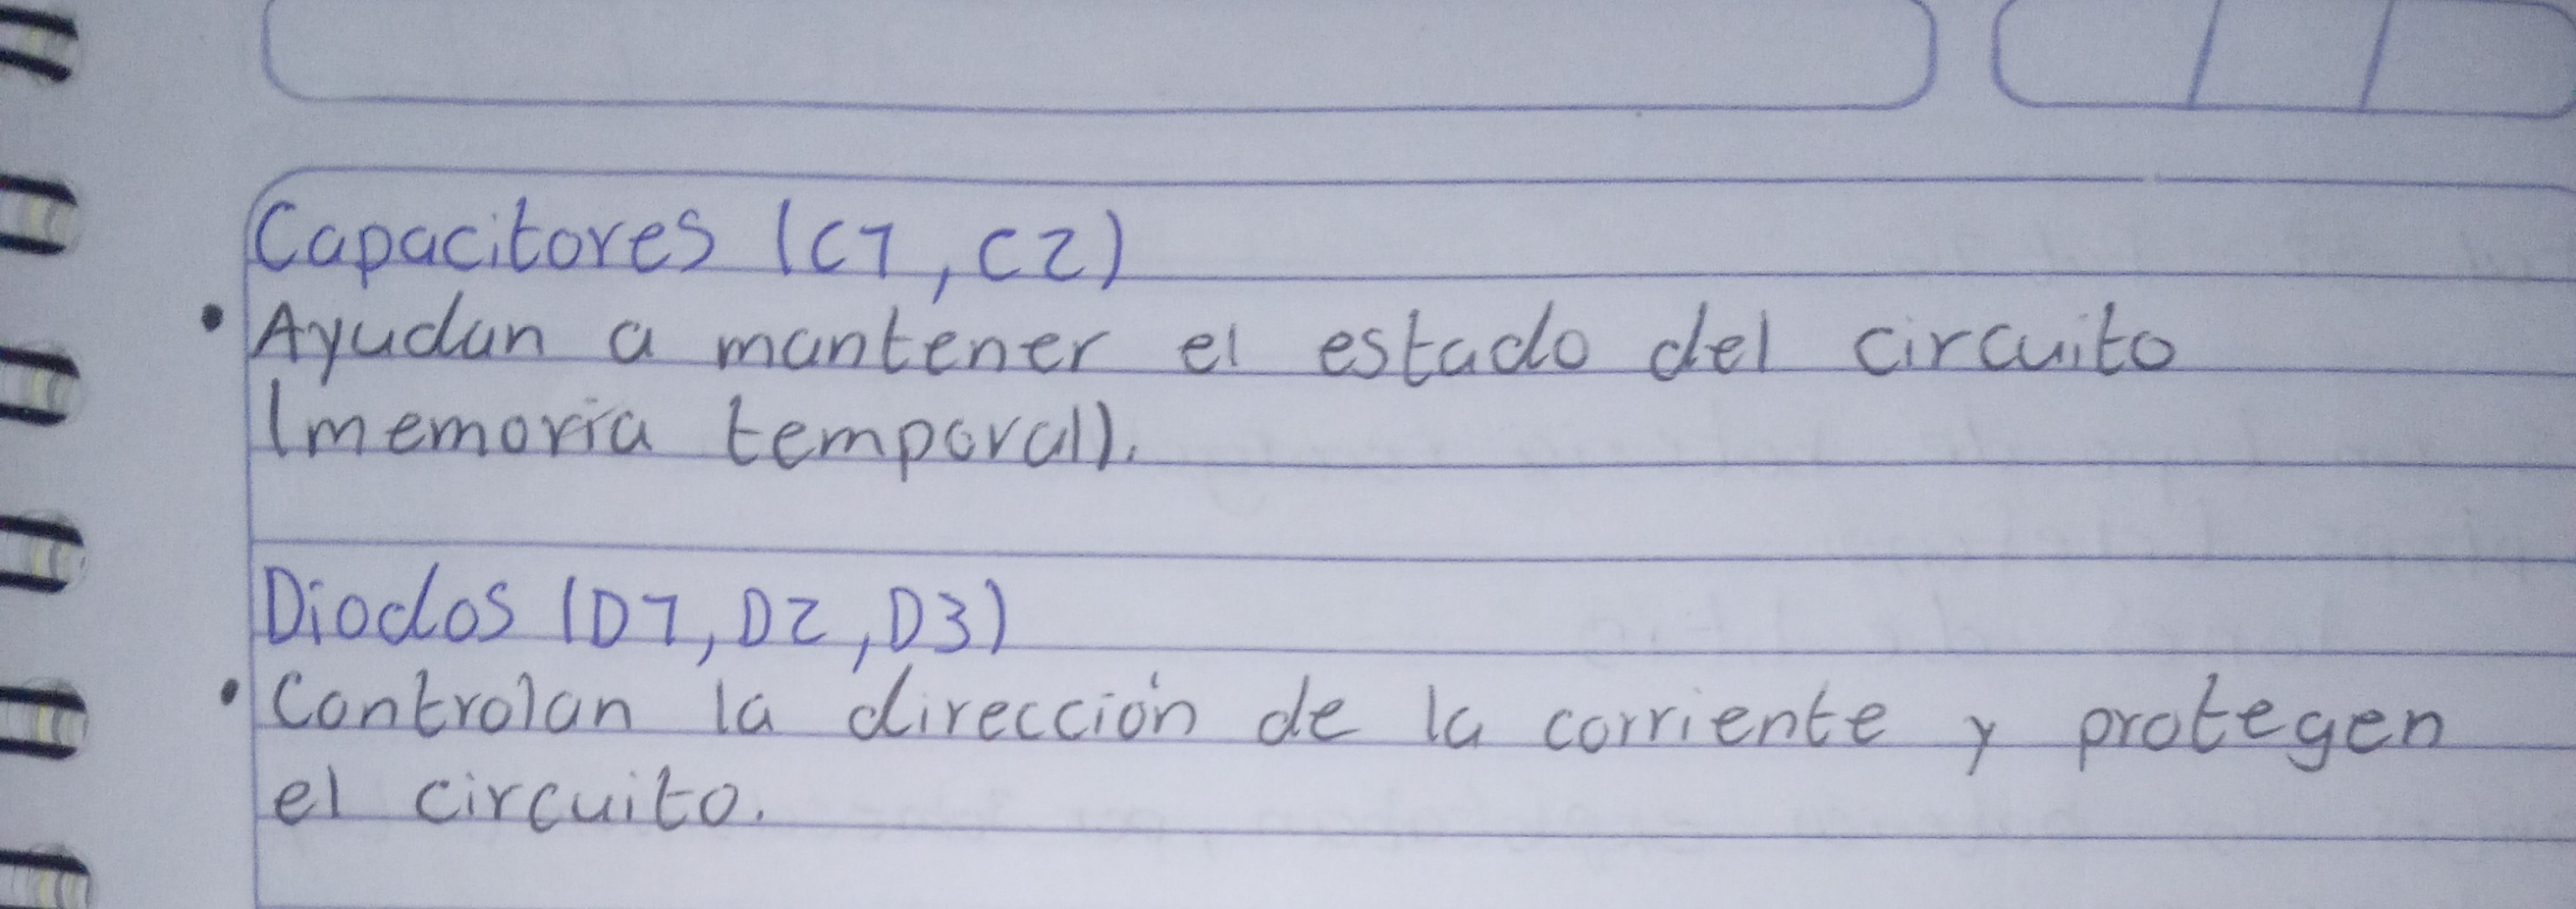 Capacitores (C1, C2)
• Ayudan a mantener el estado del circuito
(memoria temporal).
Diodos (D1, D2, D3)
• Controlan la dirección de la corriente y protegen
el circuito.